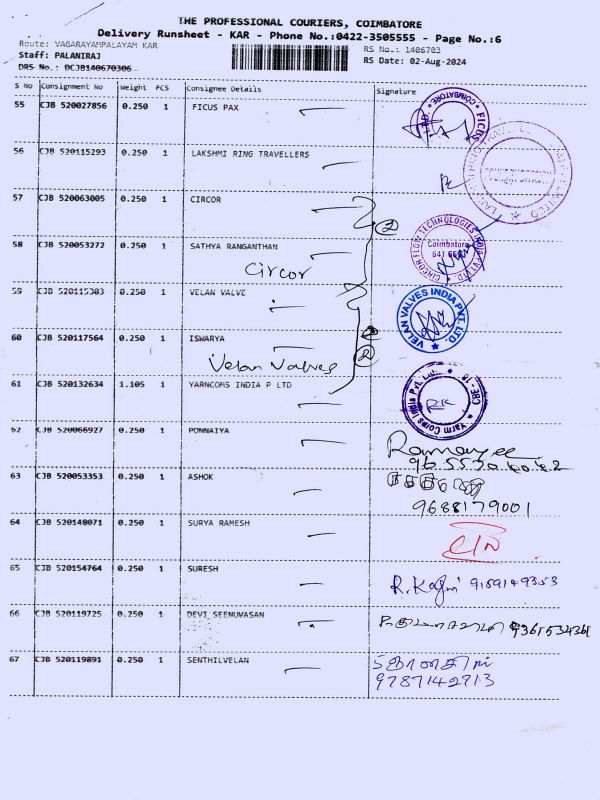 THE PROFESSIONAL COURIERS, COIMBATORE
Delivery Runsheet - KAR - Phone No.:0422-3505555 - Page No.:6
Route: VAGARAYAMPALAYAM KAR
RS No.: 1406703
Staff: PALANIRAJ
RS Date: 02-Aug-2024
DRS No.: DCJB140670306
S No Consignment No Weight PCS Consignee Details Signature
55 CJB 520027856 0.250 1 FICUS PAX
56 CJB 520115293 0.250 1 LAKSHMI RING TRAVELLERS
57 CJB 520063005 0.250 1 CIRCOR
2
58 CJB 520053272 0.250 1 SATHYA RANGANTHAN
Circor
CIRCOR FLOW TECHNOLOGIES INDIA PVT LTD
Coimbatore
59 CJB 520115303 0.250 1 VELAN VALVE
VELAN VALVES INDIA PVT. LTD.
60 CJB 520117564 0.250 1 ISWARYA
Velan Valves
2
61 CJB 520132634 1.105 1 YARNCOMS INDIA P LTD
Yarn Coms India Pvt. Ltd. CBE - 18
RK
62 CJB 520066927 0.250 1 PONNAIYA
63 CJB 520053353 0.250 1 ASHOK
9688179001
64 CJB 520148071 0.250 1 SURYA RAMESH
65 CJB 520154764 0.250 1 SURESH
9159149353
66 CJB 520119725 0.250 1 DEVI SEENUVASAN
67 CJB 520119891 0.250 1 SENTHILVELAN
9787142713